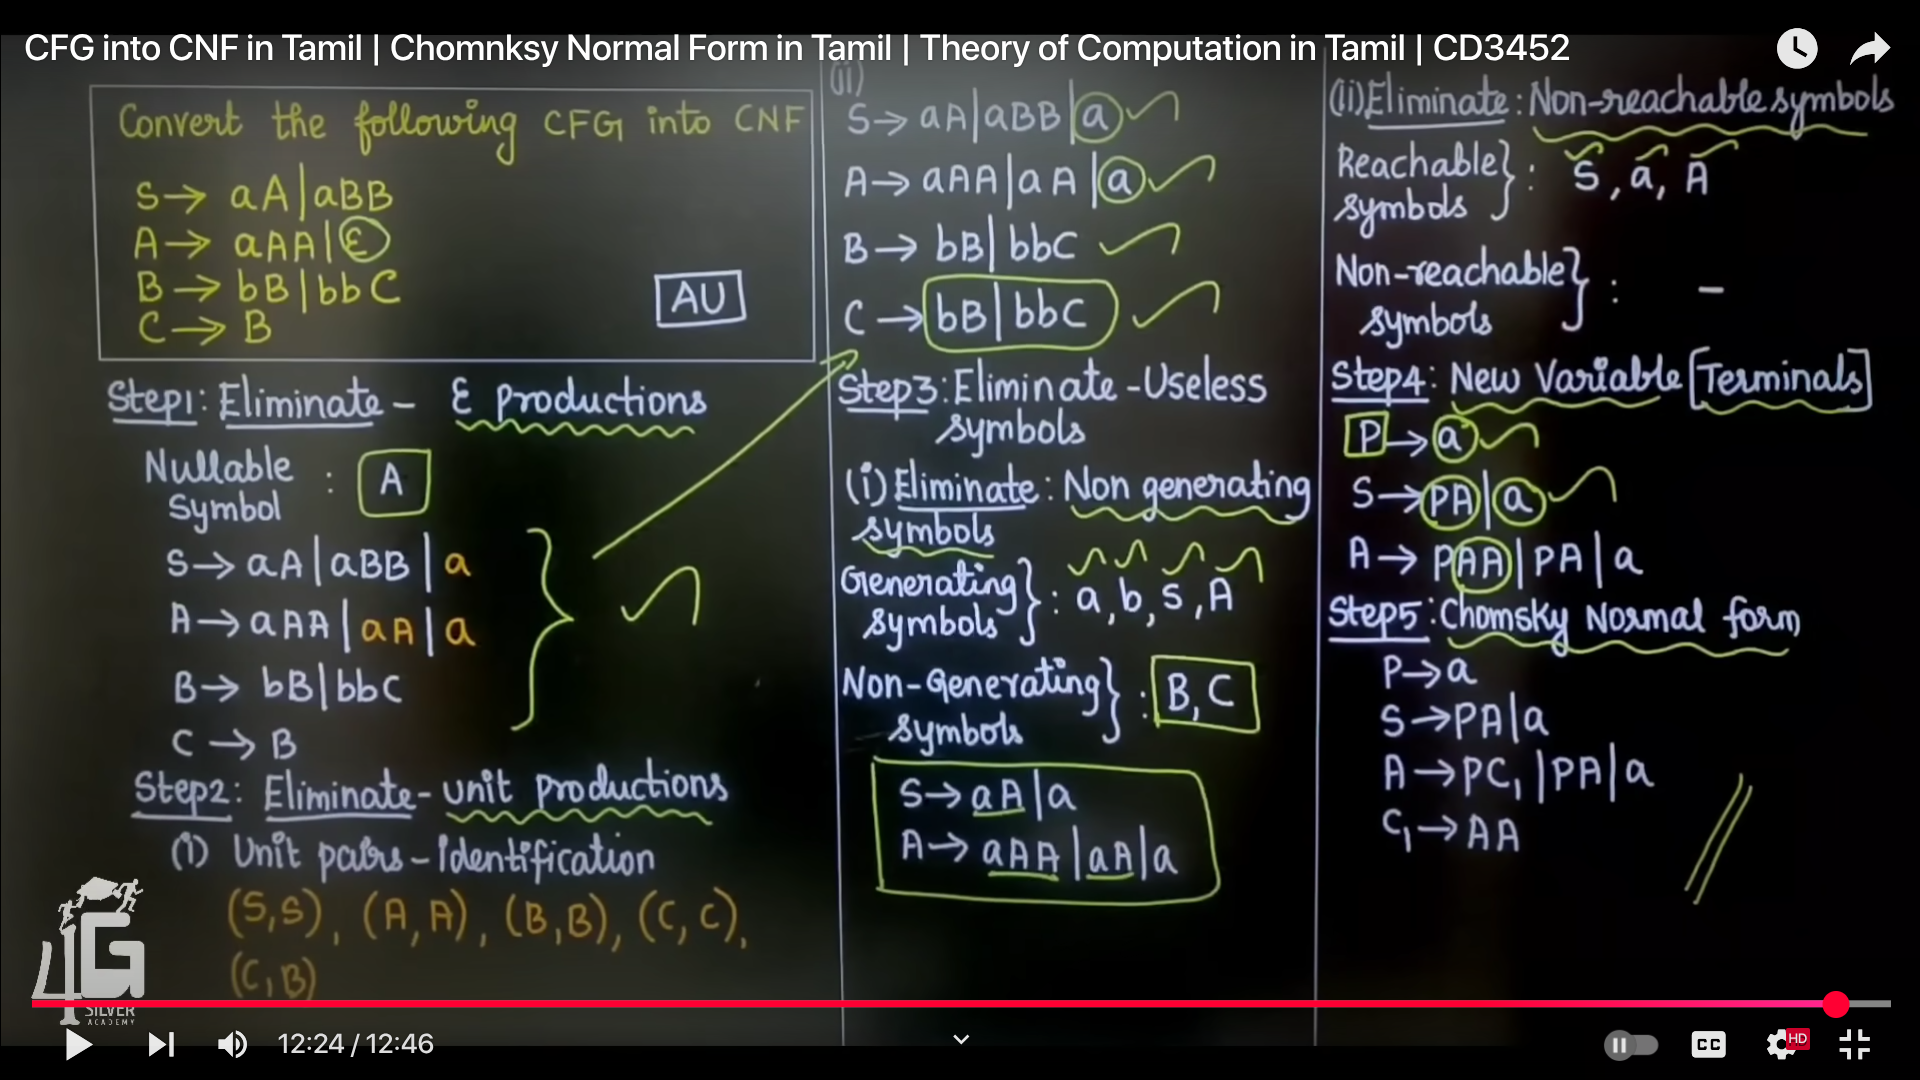 CFG into CNF in Tamil | Chomnksy Normal Form in Tamil | Theory of Computation in Tamil | CD3452
Convert the following CFG into CNF
S→ aA|aBB
A→ aAA|ε
B→ bB|bbC
C→ B
AU
Step1: Eliminate - ε productions
Nullable Symbol : A
S→ aA|aBB|a
A→ aAA|aA|a
B→ bB|bbC
C→ B
Step2: Eliminate - unit productions
(i) Unit pairs - Identification
(S,S), (A,A), (B,B), (C,C),
(C,B)
(ii)
S→ aA|aBB|a
A→ aAA|aA|a
B→ bB|bbC
C→ bB|bbC
Step3: Eliminate - Useless
symbols
(i) Eliminate: Non generating
symbols
Generating symbols } : a, b, S, A
Non-Generating symbols } : B, C
S→ aA|a
A→ aAA|aA|a
(ii) Eliminate: Non-reachable symbols
Reachable symbols } : S, a, A
Non-reachable symbols } : -
Step4: New Variable [Terminals]
P→ a
S→ PA|a
A→ PAA|PA|a
Step5: Chomsky Normal form
P→ a
S→ PA|a
A→ PC₁|PA|a
C₁→ AA
G
SILVER
ACADEMY
12:24 / 12:46
CC
HD